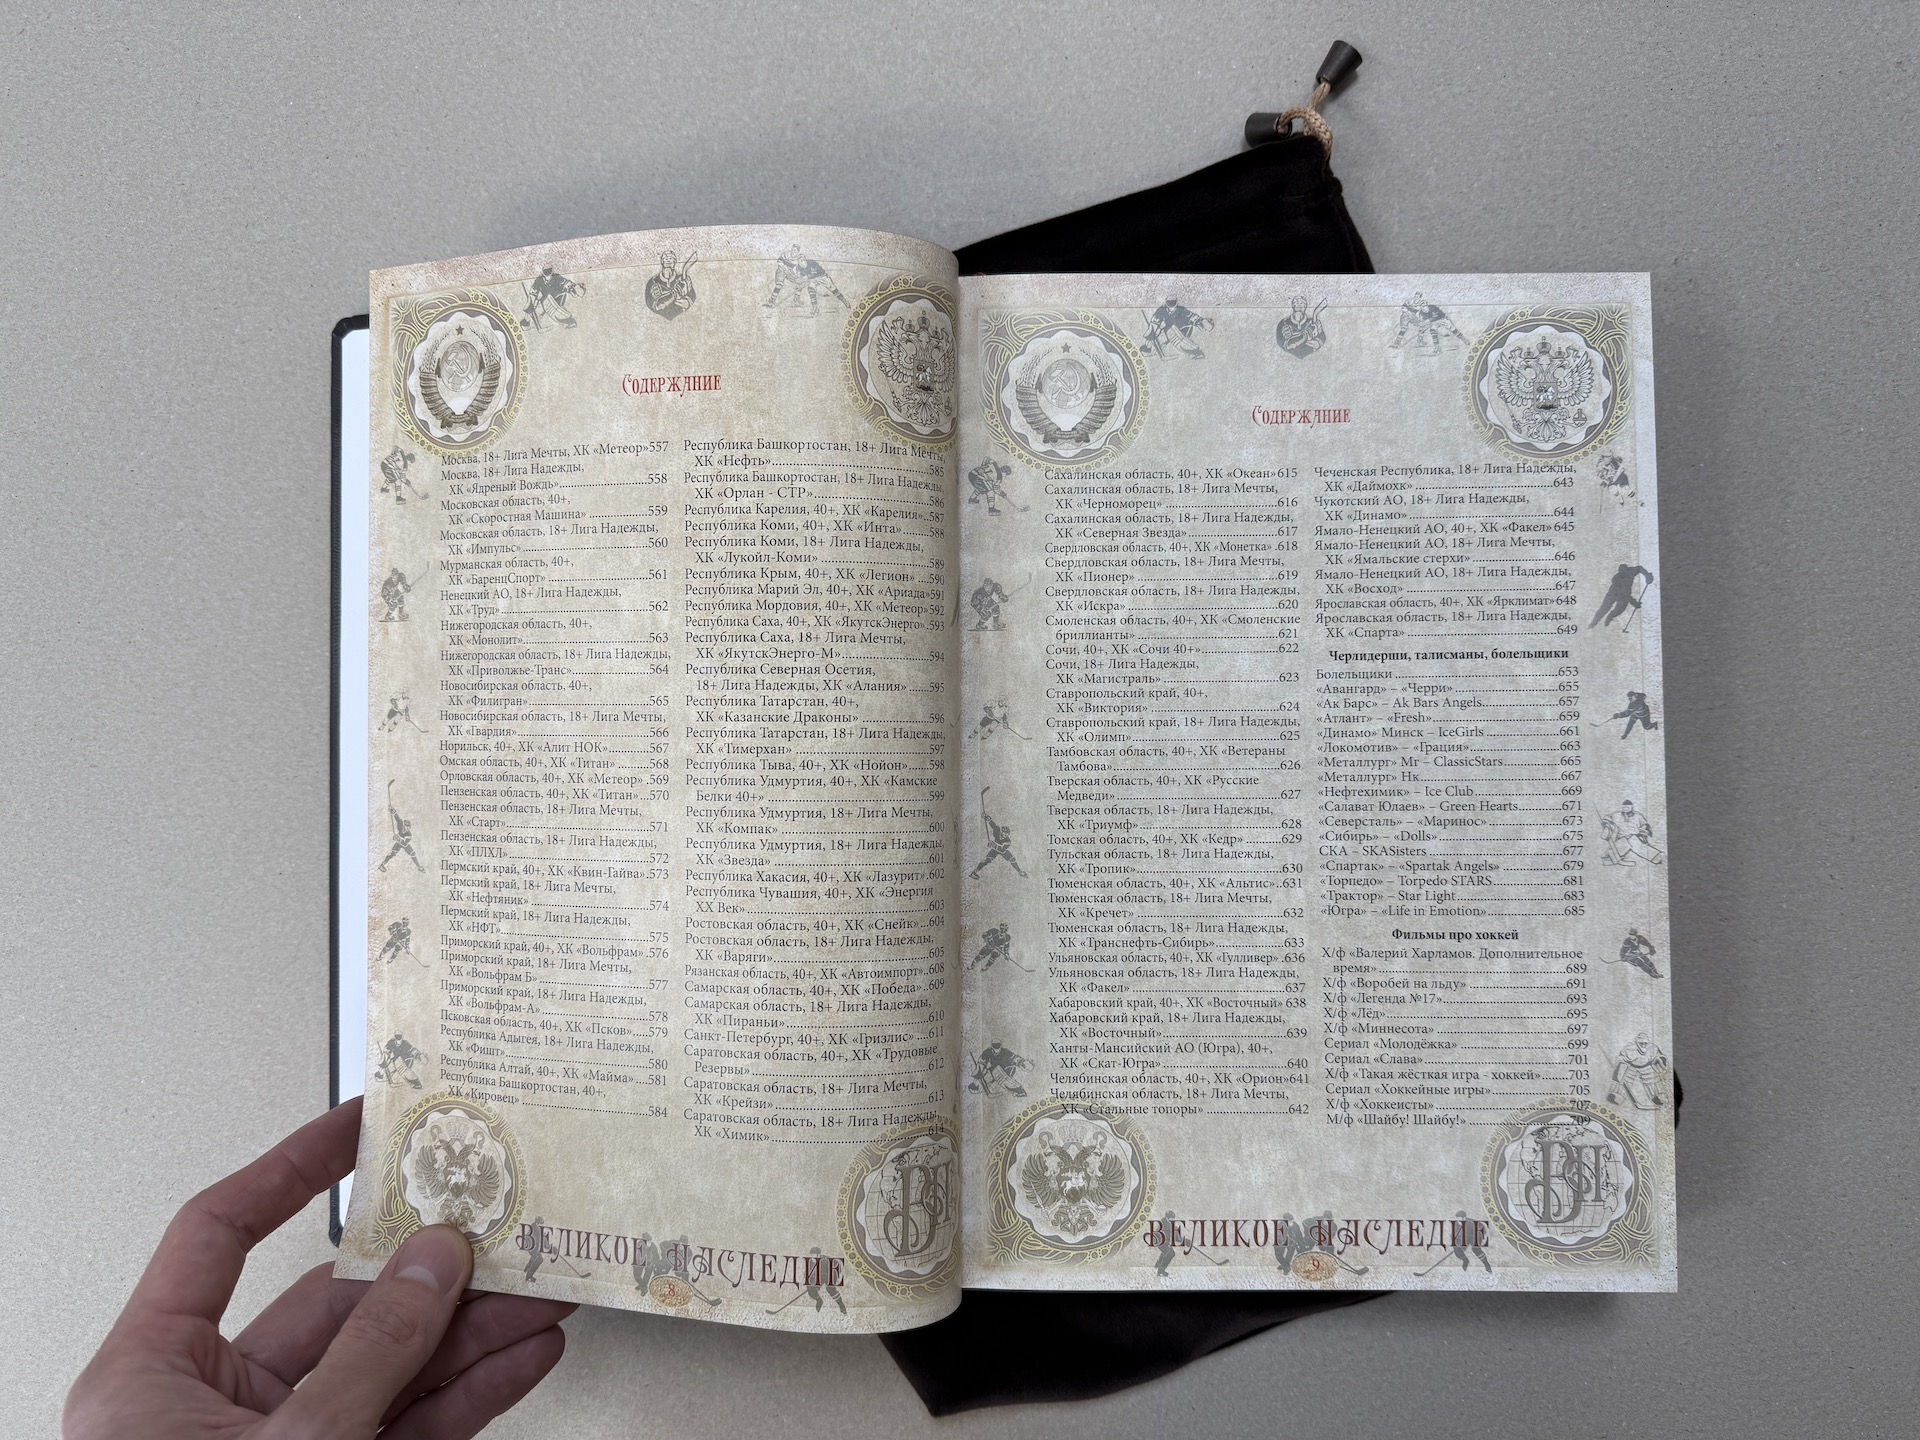 Содержание
Москва, 18+ Лига Мечты, ХК «Метеор»557
Москва, 18+ Лига Надежды,
ХК «Ядреный Вождь»..........558
Московская область, 40+,
ХК «Скоростная Машина»..........559
Московская область, 18+ Лига Надежды,
ХК «Импульс»..........560
Мурманская область, 40+,
ХК «БаренцСпорт»..........561
Ненецкий АО, 18+ Лига Надежды,
ХК «Труд»..........562
Нижегородская область, 40+,
ХК «Монолит»..........563
Нижегородская область, 18+ Лига Надежды,
ХК «Приволжье-Транс»..........564
Новосибирская область, 40+,
ХК «Филигран»..........565
Новосибирская область, 18+ Лига Мечты,
ХК «Гвардия»..........566
Норильск, 40+, ХК «Алит НОК»..........567
Омская область, 40+, ХК «Титан»..........568
Орловская область, 40+, ХК «Метеор» .569
Пензенская область, 40+, ХК «Титан»...570
Пензенская область, 18+ Лига Мечты,
ХК «Старт»..........571
Пензенская область, 18+ Лига Надежды,
ХК «ПЛХЛ»..........572
Пермский край, 40+, ХК «Квин-Гайва».573
Пермский край, 18+ Лига Мечты,
ХК «Нефтяник»..........574
Пермский край, 18+ Лига Надежды,
ХК «НФТ»..........575
Приморский край, 40+, ХК «Вольфрам» .576
Приморский край, 18+ Лига Мечты,
ХК «Вольфрам Б»..........577
Приморский край, 18+ Лига Надежды,
ХК «Вольфрам-А»..........578
Псковская область, 40+, ХК «Псков»....579
Республика Адыгея, 18+ Лига Надежды,
ХК «Фишт»..........580
Республика Алтай, 40+, ХК «Майма»....581
Республика Башкортостан, 40+,
ХК «Кировец»..........584
Республика Башкортостан, 18+ Лига Мечты,
ХК «Нефть»..........585
Республика Башкортостан, 18+ Лига Надежды,
ХК «Орлан - СТР»..........586
Республика Карелия, 40+, ХК «Карелия»..587
Республика Коми, 40+, ХК «Инта»..........588
Республика Коми, 18+ Лига Надежды,
ХК «Лукойл-Коми»..........589
Республика Крым, 40+, ХК «Легион» ...590
Республика Марий Эл, 40+, ХК «Ариада»591
Республика Мордовия, 40+, ХК «Метеор»592
Республика Саха, 40+, ХК «ЯкутскЭнерго».593
Республика Саха, 18+ Лига Мечты,
ХК «ЯкутскЭнерго-М»..........594
Республика Северная Осетия,
18+ Лига Надежды, ХК «Алания»..........595
Республика Татарстан, 40+,
ХК «Казанские Драконы»..........596
Республика Татарстан, 18+ Лига Надежды,
ХК «Тимерхан»..........597
Республика Тыва, 40+, ХК «Нойон»..........598
Республика Удмуртия, 40+, ХК «Камские
Белки 40+»..........599
Республика Удмуртия, 18+ Лига Мечты,
ХК «Компак»..........600
Республика Удмуртия, 18+ Лига Надежды,
ХК «Звезда»..........601
Республика Хакасия, 40+, ХК «Лазурит».602
Республика Чувашия, 40+, ХК «Энергия
XX Век»..........603
Ростовская область, 40+, ХК «Снейк»...604
Ростовская область, 18+ Лига Надежды,
ХК «Варяги»..........605
Рязанская область, 40+, ХК «Автоимпорт»..608
Самарская область, 40+, ХК «Победа»..609
Самарская область, 18+ Лига Надежды,
ХК «Пираньи»..........610
Санкт-Петербург, 40+, ХК «Гризлис»....611
Саратовская область, 40+, ХК «Трудовые
Резервы»..........612
Саратовская область, 18+ Лига Мечты,
ХК «Крейзи»..........613
Саратовская область, 18+ Лига Надежды,
ХК «Химик»..........614
ВЕЛИКОЕ НАСЛЕДИЕ
8
Содержание
Сахалинская область, 40+, ХК «Океан»615
Сахалинская область, 18+ Лига Мечты,
ХК «Черноморец»..........616
Сахалинская область, 18+ Лига Надежды,
ХК «Северная Звезда»..........617
Свердловская область, 40+, ХК «Монетка» .618
Свердловская область, 18+ Лига Мечты,
ХК «Пионер»..........619
Свердловская область, 18+ Лига Надежды,
ХК «Искра»..........620
Смоленская область, 40+, ХК «Смоленские
бриллианты»..........621
Сочи, 40+, ХК «Сочи 40+»..........622
Сочи, 18+ Лига Надежды,
ХК «Магистраль»..........623
Ставропольский край, 40+,
ХК «Виктория»..........624
Ставропольский край, 18+ Лига Надежды,
ХК «Олимп»..........625
Тамбовская область, 40+, ХК «Ветераны
Тамбова»..........626
Тверская область, 40+, ХК «Русские
Медведи»..........627
Тверская область, 18+ Лига Надежды,
ХК «Триумф»..........628
Томская область, 40+, ХК «Кедр»..........629
Тульская область, 18+ Лига Надежды,
ХК «Тропик»..........630
Тюменская область, 40+, ХК «Альтис»..631
Тюменская область, 18+ Лига Мечты,
ХК «Кречет»..........632
Тюменская область, 18+ Лига Надежды,
ХК «Транснефть-Сибирь»..........633
Ульяновская область, 40+, ХК «Гулливер» .636
Ульяновская область, 18+ Лига Надежды,
ХК «Факел»..........637
Хабаровский край, 40+, ХК «Восточный» 638
Хабаровский край, 18+ Лига Надежды,
ХК «Восточный»..........639
Ханты-Мансийский АО (Югра), 40+,
ХК «Скат-Югра»..........640
Челябинская область, 40+, ХК «Орион»641
Челябинская область, 18+ Лига Мечты,
ХК «Стальные топоры»..........642
Чеченская Республика, 18+ Лига Надежды,
ХК «Даймохк»..........643
Чукотский АО, 18+ Лига Надежды,
ХК «Динамо»..........644
Ямало-Ненецкий АО, 40+, ХК «Факел» 645
Ямало-Ненецкий АО, 18+ Лига Мечты,
ХК «Ямальские стерхи»..........646
Ямало-Ненецкий АО, 18+ Лига Надежды,
ХК «Восход»..........647
Ярославская область, 40+, ХК «Ярклимат»648
Ярославская область, 18+ Лига Надежды,
ХК «Спарта»..........649
Черлидерши, талисманы, болельщики
Болельщики..........653
«Авангард» – «Черри»..........655
«Ак Барс» – Ak Bars Angels..........657
«Атлант» – «Fresh»..........659
«Динамо» Минск – IceGirls..........661
«Локомотив» – «Грация»..........663
«Металлург» Мг – ClassicStars..........665
«Металлург» Нк..........667
«Нефтехимик» – Ice Club..........669
«Салават Юлаев» – Green Hearts..........671
«Северсталь» – «Маринос»..........673
«Сибирь» – «Dolls»..........675
СКА – SKASisters..........677
«Спартак» – «Spartak Angels»..........679
«Торпедо» – Torpedo STARS..........681
«Трактор» – Star Light..........683
«Югра» – «Life in Emotion»..........685
Фильмы про хоккей
Х/ф «Валерий Харламов. Дополнительное
время»..........689
Х/ф «Воробей на льду»..........691
Х/ф «Легенда №17»..........693
Х/ф «Лёд»..........695
Х/ф «Миннесота»..........697
Сериал «Молодёжка»..........699
Сериал «Слава»..........701
Х/ф «Такая жёсткая игра - хоккей»......703
Сериал «Хоккейные игры»..........705
Х/ф «Хоккеисты»..........707
М/ф «Шайбу! Шайбу!»..........709
ВЕЛИКОЕ НАСЛЕДИЕ
9